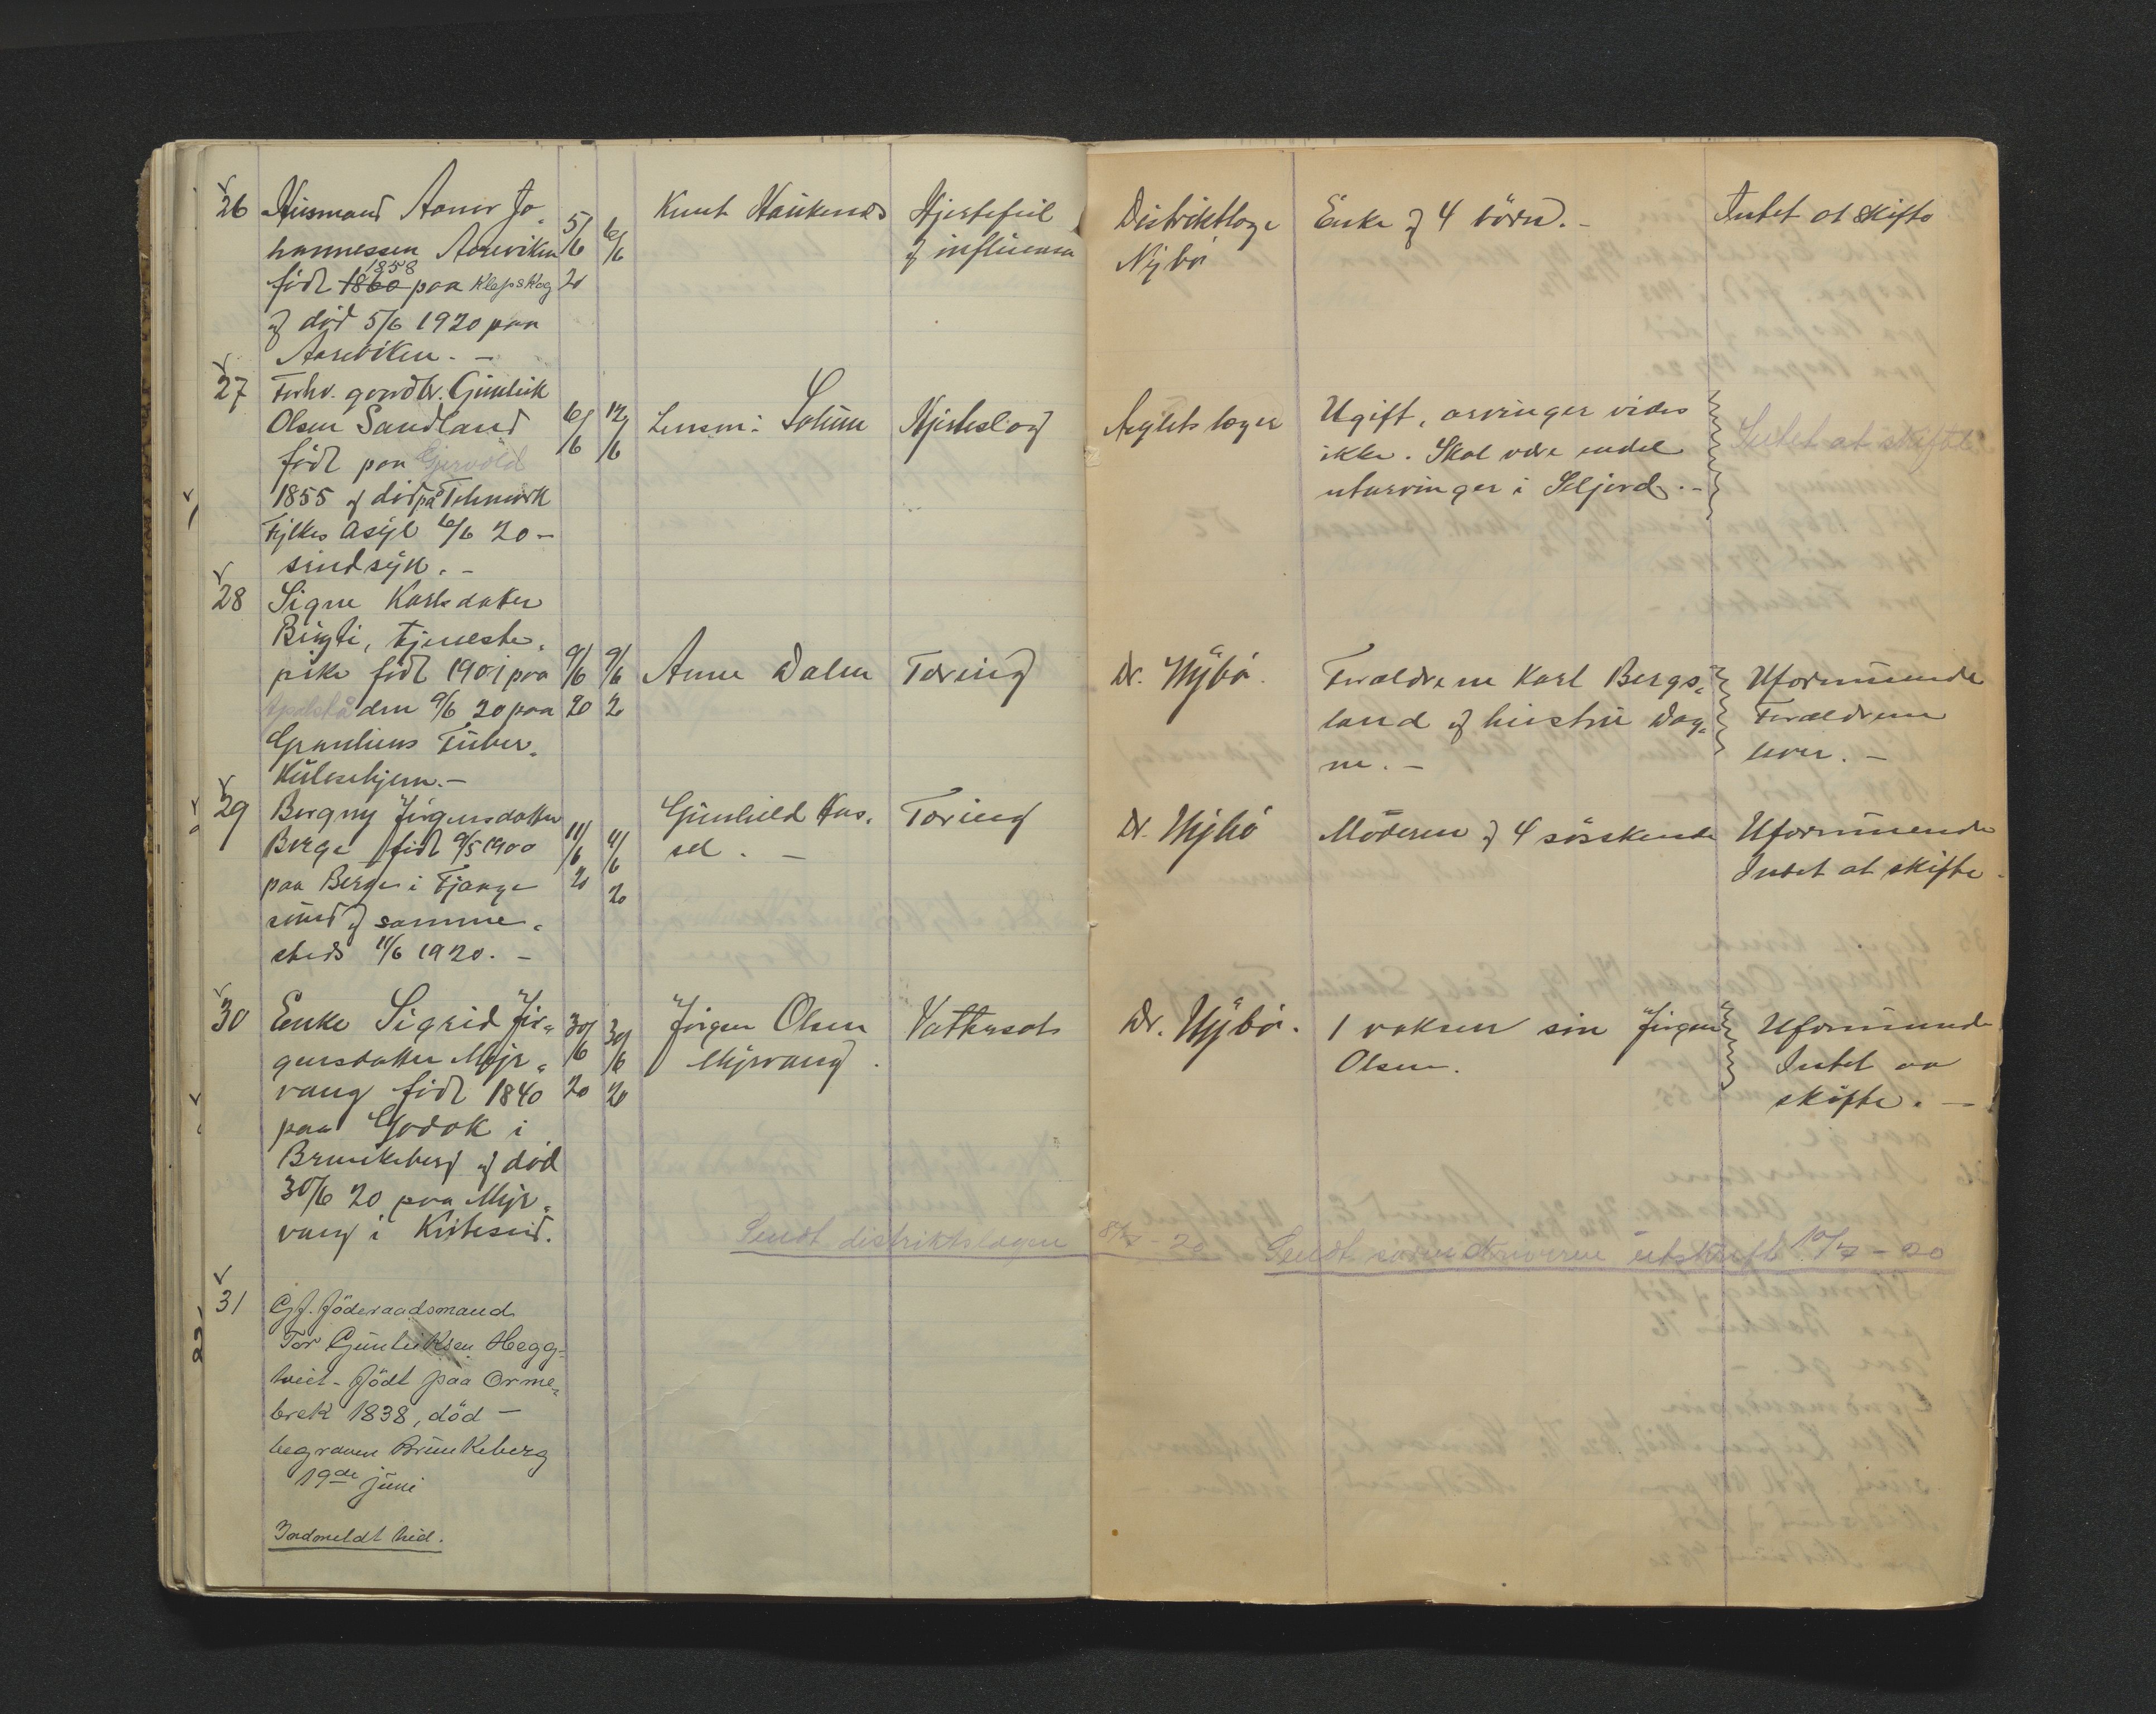 26 Husmand Aanov Jo-
hannessen Aareviken
født 1860 1858 paa Klepskog
og død 5/6 1920 paa
Aareviken. -
5/6 20
6/6
Knut Haukenes
Hjertefeil
og influensa
Distriktlæge
Nybø
Enke og 4 börn. -
Intet at skifte
27 Forhv. gaardbr. Gunleik
Olsen Sandland
født paa
1855 og död på Telemark
Fylkes Asyl 6/6 20 -
sindsyk. -
6/6
12/6
Lensm: Solum
Hjerteslag
Asylets læger
Ugift, arvinger vides
ikke. Skal være endel
utarvinger i Seljord. -
Intet at skifte
28 Signe Karlsdatter
tjeneste-
pike født 1901 paa
den 9/6 20 paa
Granliens Tuber-
kulosehjem. -
9/6 20
9/6 20
Anne Dalen
Tæring
Dr. Nybø.
Forældrene Karl Bergs-
land og hustru Dag-
ne. -
Uformuende
Forældrene
lever. -
29 Borgny Jørgensdatter
Berge født 9/5 1900
paa Berge i Fjaage-
sund og samme-
steds 11/6 1920. -
11/6 20
11/6 20
Gunhild Aas-
sel. -
Tæring
Dr. Nybø
Moderen og 4 søskende
Uformuende
Intet at skifte.
30 Enke Sigrid Jør-
gensdatter Myr-
vang født 1840
paa Godok i
Brunkeberg og død
30/6 20 paa Myr-
vang i Kviteseid.
30/6 20
30/6 20
Jørgen Olsen
Myrvang.
Vattersot
Dr. Nybø.
1 voksen søn Jørgen
Olsen.
Uformuende
Intet aa
skifte. -
Sendt distriktslægen 8/7 - 20
Sendt sorenskriveren utskrift 10/7 - 20
31 Gf. föderaadsmand
Tor Gunleiksen Hegg-
tveit - född paa Orme-
brek 1838, död -
begraven Brunkeberg
19de juni
Indmeldt hid.